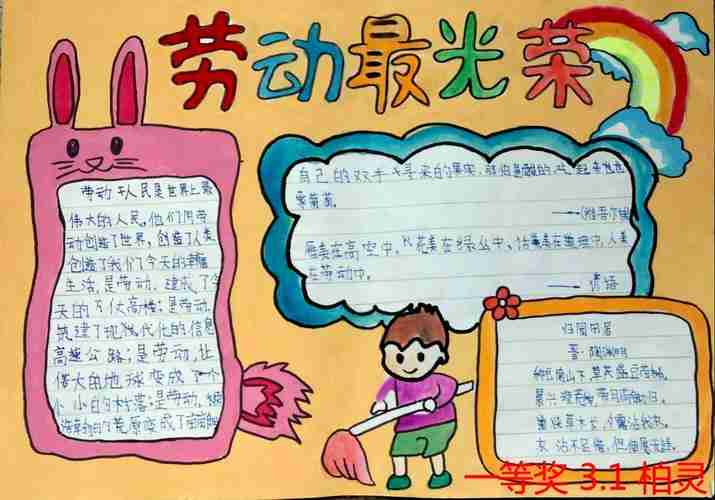 劳动最光荣
劳动人民是世界上最
伟大的人民,他们用劳
动创造了世界,创造了人类
创造了我们今天的幸福
生活,是劳动,建成了今
天的万丈高楼;是劳动,
筑建了现代化的信息
高速公路;是劳动,让
偌大的地球变成了一个
小小的村落;是劳动,使
荒原变成了
自己的双手 来的果实,
雁美在高空中,花美在绿丛中,话美在道理中,人美
在劳动中。
——谚语
归园田居
晋·陶渊明
种豆南山下,草盛豆苗稀。
晨兴理荒秽,带月荷锄归。
道狭草木长,夕露沾我衣。
衣沾不足惜,但使愿无违。
一等奖 3.1 柏灵